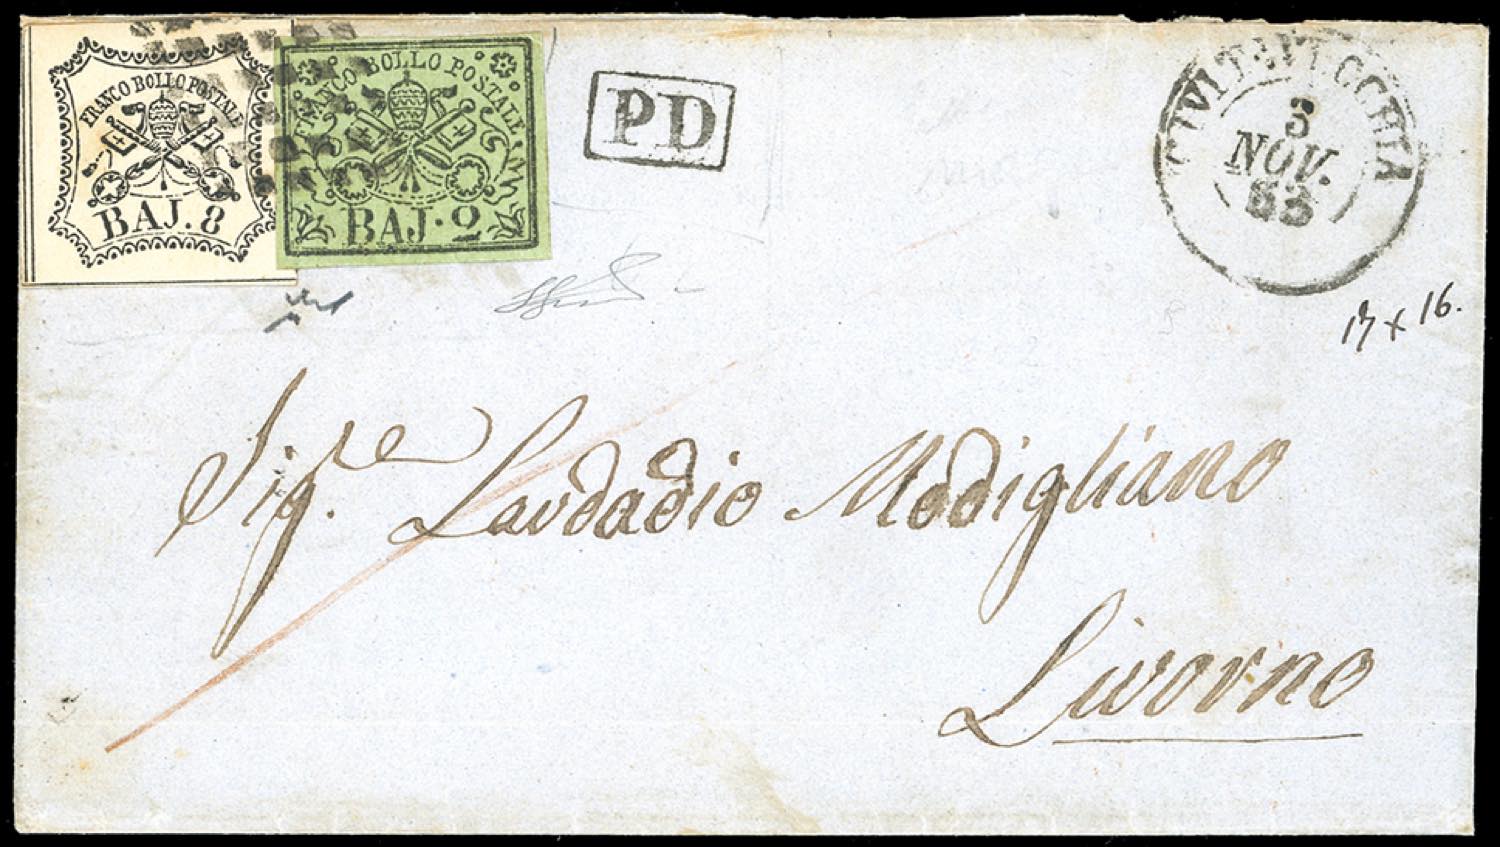 FRANCO BOLLO POSTALE
BAJ. 8
FRANCO BOLLO POSTALE
BAJ. 2
PD
CIVITAVECCHIA
3
NOV.
17 x 16.
Sig.re Laudadio Modigliano
Livorno